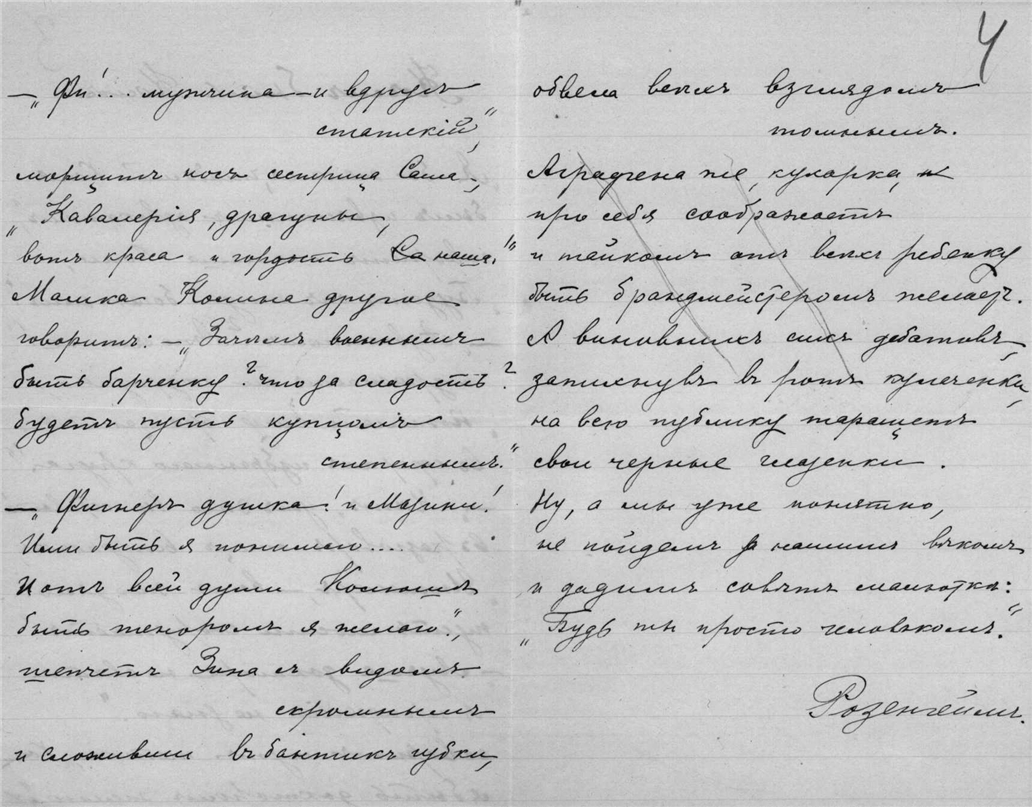 4
— „Фи!... мужчина – и вдругъ
статскiй“,
морщитъ носъ сестрица Саша,
„Кавалерiя, драгуны,
вотъ краса и гордость наша!“
Мамка Колина другое
говоритъ: – „Зачѣмъ военнымъ
быть барченку? что за сладость?
будетъ пусть купцомъ
степеннымъ.“
— „Фигнеръ душка! и Мазини!
Ими быть я понимаю...
И отъ всей души Колюшѣ
быть теноромъ я желаю“,
шепчетъ Зина съ видомъ
скромнымъ
и сложивши въ бантикъ губки,
обвела всѣхъ взглядомъ
томнымъ.
Аграфена же, кухарка,
про себя соображаетъ
и тайкомъ отъ всѣхъ ребенку
быть брандмейстеромъ желаетъ.
А виновникъ сихъ дебатовъ,
запихнувъ въ ротъ кулаченки,
на всю публику таращитъ
свои черные глазенки.
Ну, а мы уже понятно,
не пойдемъ за нашимъ вѣкомъ
и дадимъ совѣтъ малюткѣ:
„Будь ты просто человѣкомъ.“
Розенгеймъ.